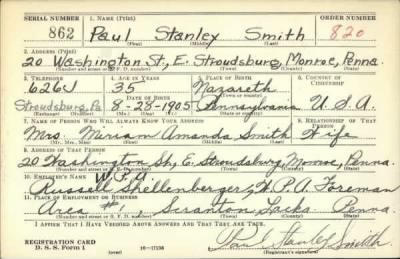 SERIAL NUMBER 1. NAME (Print) ORDER NUMBER
862 Paul Stanley Smith 820
(First) (Middle) (Last)
2. ADDRESS (Print)
20 Washington St., E. Stroudsburg, Monroe, Penna.
(Number and street or R. F. D. number) (Town) (County) (State)
3. TELEPHONE 4. AGE IN YEARS 5. PLACE OF BIRTH 6. COUNTRY OF CITIZENSHIP
626J 35 Nazareth
DATE OF BIRTH (Town or county)
Stroudsburg, Pa 8-28-1905 Pennsylvania U.S.A.
(Exchange) (Number) (Mo.) (Day) (Yr.) (State or country)
7. NAME OF PERSON WHO WILL ALWAYS KNOW YOUR ADDRESS 8. RELATIONSHIP OF THAT PERSON
Mrs. Miriam Amanda Smith Wife
(Mr., Mrs., Miss) (First) (Middle) (Last)
9. ADDRESS OF THAT PERSON
20 Washington St., E. Stroudsburg, Monroe, Penna.
(Number and street or R. F. D. number) (Town) (County) (State)
10. EMPLOYER'S NAME W.P.A.
Russell Shellenberger, W.P.A. Foreman
11. PLACE OF EMPLOYMENT OR BUSINESS
Area #1, Scranton Lacka. Penna.
(Number and street or R. F. D. number) (Town) (County) (State)
I AFFIRM THAT I HAVE VERIFIED ABOVE ANSWERS AND THAT THEY ARE TRUE.
REGISTRATION CARD
D. S. S. Form 1 16-17105 Paul Stanley Smith
(Registrant's signature)